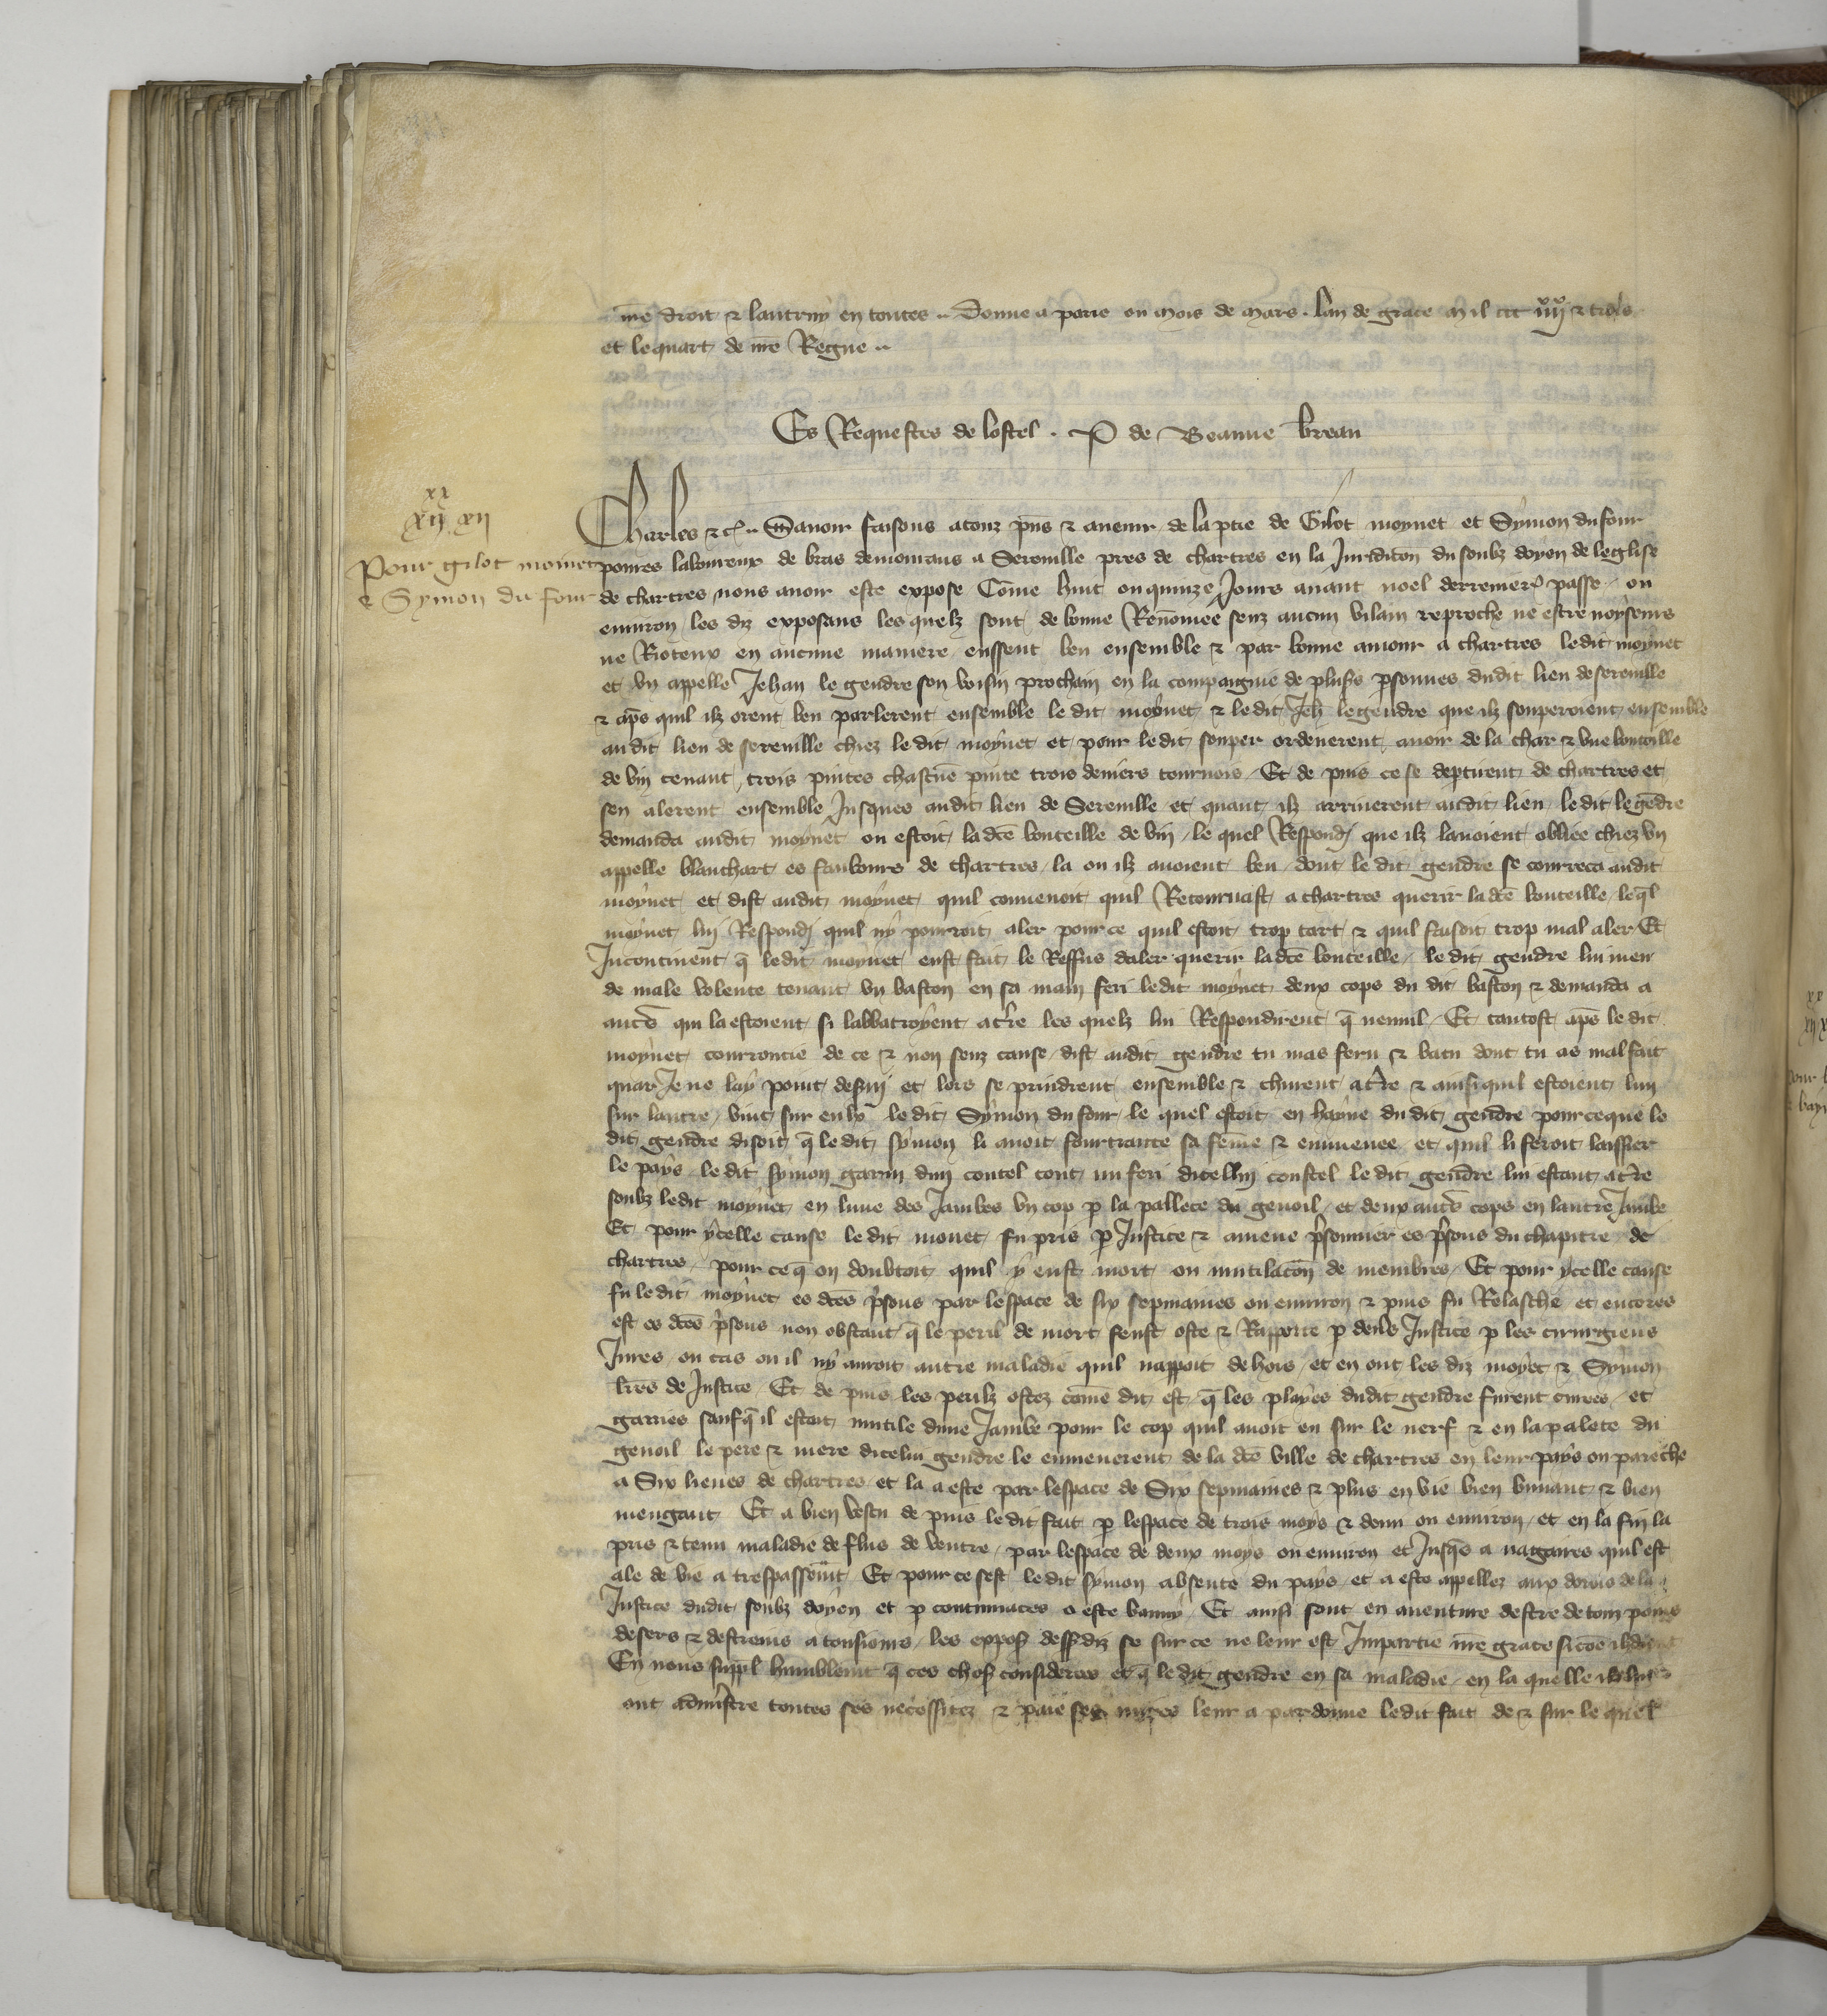 mẽ droit & lautruy en toutes .. Donne a paris ou mois de mars . lan de grace mil ccc iiii xx & trois
et le quart de nre Regne ..
Es Requestes de lostel . P de Beaune brean
xx
xii xii
Pour gilot moinet
& Symon du four
Charles &c .. Savoir faisons a touz pns & avenir de la ptie de Gilot moynet et Symon du four
povres laboureux de bras demourans a Sereville pres de chartres en la Juridicon du soubz doyen de leglise
de chartres nous avoir este expose Come huit ou quinze Jours avant noel derrenier passe ou
environ les diz exposans les quelz sont de bonne Renomee senz aucun vilain reproche ne estre noyseus
ne Rioteux en aucune maniere eussent beu ensemble & par bonne amour a chartres ledit moynet
et un appelle Jehan le gendre son voisin prochain en la compaignie de plusrs psonnes dudit lieu de sereville
& aps quil ilz orent beu parlerent ensemble le dit moynet & le dit Jeh legendre que ilz souperoient ensemble
audit lieu de sereville chiez le dit moynet et pour ledit souper ordenerent avoir de la char & une bouteille
de vin tenant trois pintes chascune pinte trois deniers tournois Et de puis ce se deptirent de chartres et
sen alerent ensemble Jusques audit lieu de Sereville et quant ilz arriverent audit lieu ledit le gedre
demanda audit moynet ou estoit la dce bouteille de vin le quel Respondi que ilz lavoient obliee chiez un
appelle blanchart es faubours de chartres la ou ilz avoient beu dont le dit gendre se courreca audit
moynet et dist audit moynet quil convenoit quil Retournast a chartres querir la dce bouteille leql
moynet lui Respondi quil ny pourroit aler pour ce quil estoit trop tart & quil faisoit trop mal aler Et
Incontinent q ledit moynet eust fait le Reffus daler querir la dce bouteille le dit gendre lui meu
de male volente tenant un baston en sa main feri ledit moynet deux cops du dit baston & demanda a
aucs qui la estoient si labbatroyent a tre les quelz lui Respondirent q nennil Et tantost aps le dit
moynet courroucie de ce & non senz cause dist audit gendre tu mas feru & batu dont tu as mal fait
quar Je ne lay point desvi et lors se prindrent ensemble & churent a tre & ainsi quil estoient lun
sur lautre vint sur eulx le dit Symon du four le quel estoit en hayne du dit gendre pour ce que le
dit gendre disoit q le dit symon li avoit fourtraite sa feme & emmenee et quil li feroit laissier
le pays le dit symon garni dun coutel tout nu feri dicellui coustel le dit gendre lui estant a tre
soubz ledit moynet en lune des Jambes un cop p la pallete du genoil et deux autrs cops en lautre Jambe
Et pour ycelle cause le dit monet fu pris p Justice & amene psonnier es psons du chapitre de
chartres pour ce q on doubtoit quil y eust mort ou mutilacon de membres Et pour ycelle cause
fu le dit moynet es dces psons par lespace de six sepmaines ou environ & puis fu Relasche et encores
est es dces psons non obstant q le peril de mort feust oste & Rapporte p devs Justice p les cirurgiens
Jures ou cas ou il ny auroit autre maladie quil nappoit de hors et en ont les diz moyet & Symon
lres de Justice Et de puis les perilz ostez come dit est q les playes dudit gendre furent curees et
garies sauf q il estoit mutile dune Jambe pour le cop quil avoit eu sur le nerf & en la palete du
genoil le pere & mere dicelui gendre le emmenerent de la dce ville de chartres en leur pays ou paroche
a Six lieues de chartres et la a este par lespace de Six sepmaines & plus en vie bien buvant & bien
mengant Et a bien vescu de puis le dit fait p lespace de trois moys & demi ou environ et en la fin la
pris & tenu maladie de flus de ventre par lespace de deux moys ou environ et Jusqs a nagaires quil est
ale de vie a trespassemt Et pour ce sest ledit symon absente du pays et a este appellez aux drois de la
Justice dudit soubz doyen et p contumaces a este banny Et ainsi sont en aventure destre de tom poins
desers & destruis a tousiours les exposs dessdiz se sur ce ne leur est Impartie nre grace sicoe ilz dient
En nous suppl humblemt q ces chos considerees et q le dit gendre en sa maladie en la quelle
ont admistre toutes ses necessitez & paie ses mires leur a pardonne ledit fait de & sur le quel